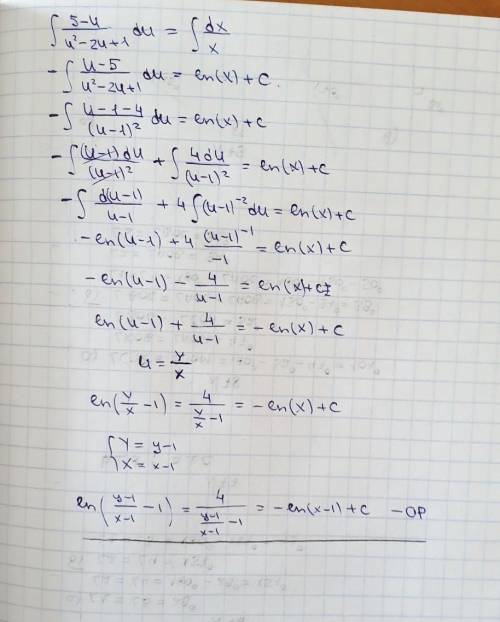 ∫ (5-u)/(u²-2u+1) du = ∫ dx/x
-∫ (u-5)/(u²-2u+1) du = ln(x)+c.
-∫ (u-1-4)/(u-1)² du = ln(x)+c
-∫ (u-1)du/(u-1)² + ∫ 4du/(u-1)² = ln(x)+c
-∫ d(u-1)/(u-1) + 4∫(u-1)⁻² du = ln(x)+c
-ln(u-1) + 4 (u-1)⁻¹/-1 = ln(x)+c
-ln(u-1) - 4/(u-1) = ln(x)+c
ln(u-1) + 4/(u-1) = -ln(x)+c
u = Y/X
ln(Y/X -1) = 4/(Y/X -1) = -ln(x)+c
{ Y = y-1
X = x-1
ln((y-1)/(x-1) -1) = 4/((y-1)/(x-1) -1) = -ln(x-1)+c - ОР